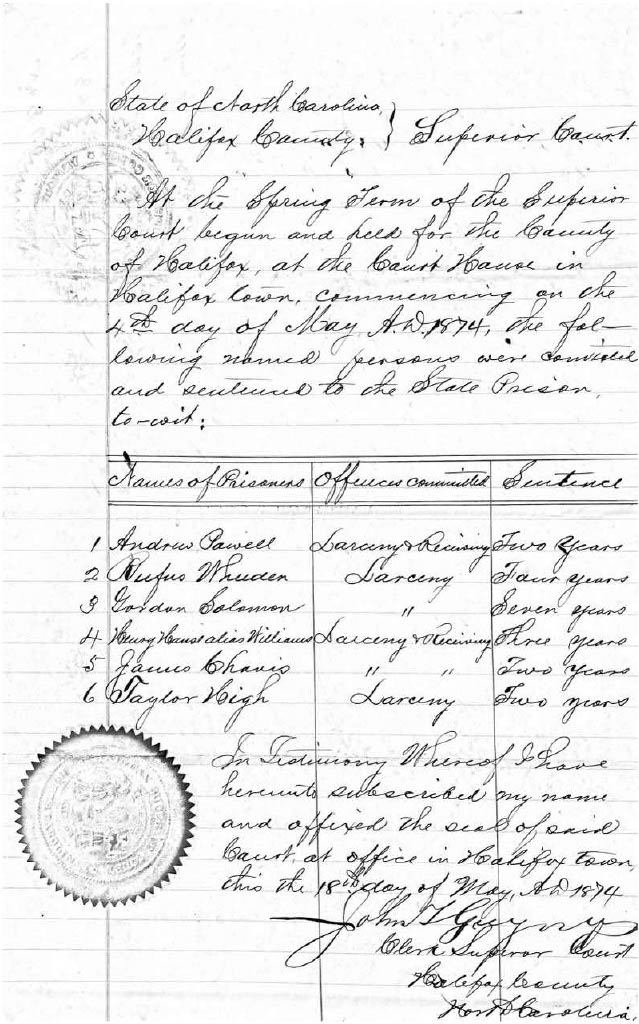 State of North Carolina,
Halifax County. } Superior Court.
At the Spring Term of the Superior
Court begun and held for the County
of Halifax, at the Court House in
Halifax town, commencing on the
4th day of May A.D. 1874, the fol-
lowing named persons were convicted
and sentenced to the State Prison,
to-wit:
Names of Prisoners Offences committed Sentence
1 Andrew Powell Larceny & Receiving Two years
2 Rufus Larceny Four years
3 Gordon Solomon " Seven years
4 Henry House alias Williams Larceny & Receiving Three years
5 James Chavis " " Two years
6 Taylor High Larceny Two years
In Testimony Whereof I have
hereunto subscribed my name
and affixed the seal of said
Court, at office in Halifax town,
this the 18th day of May, A.D. 1874
John T Gregory
Clerk Superior Court
Halifax County
North Carolina.